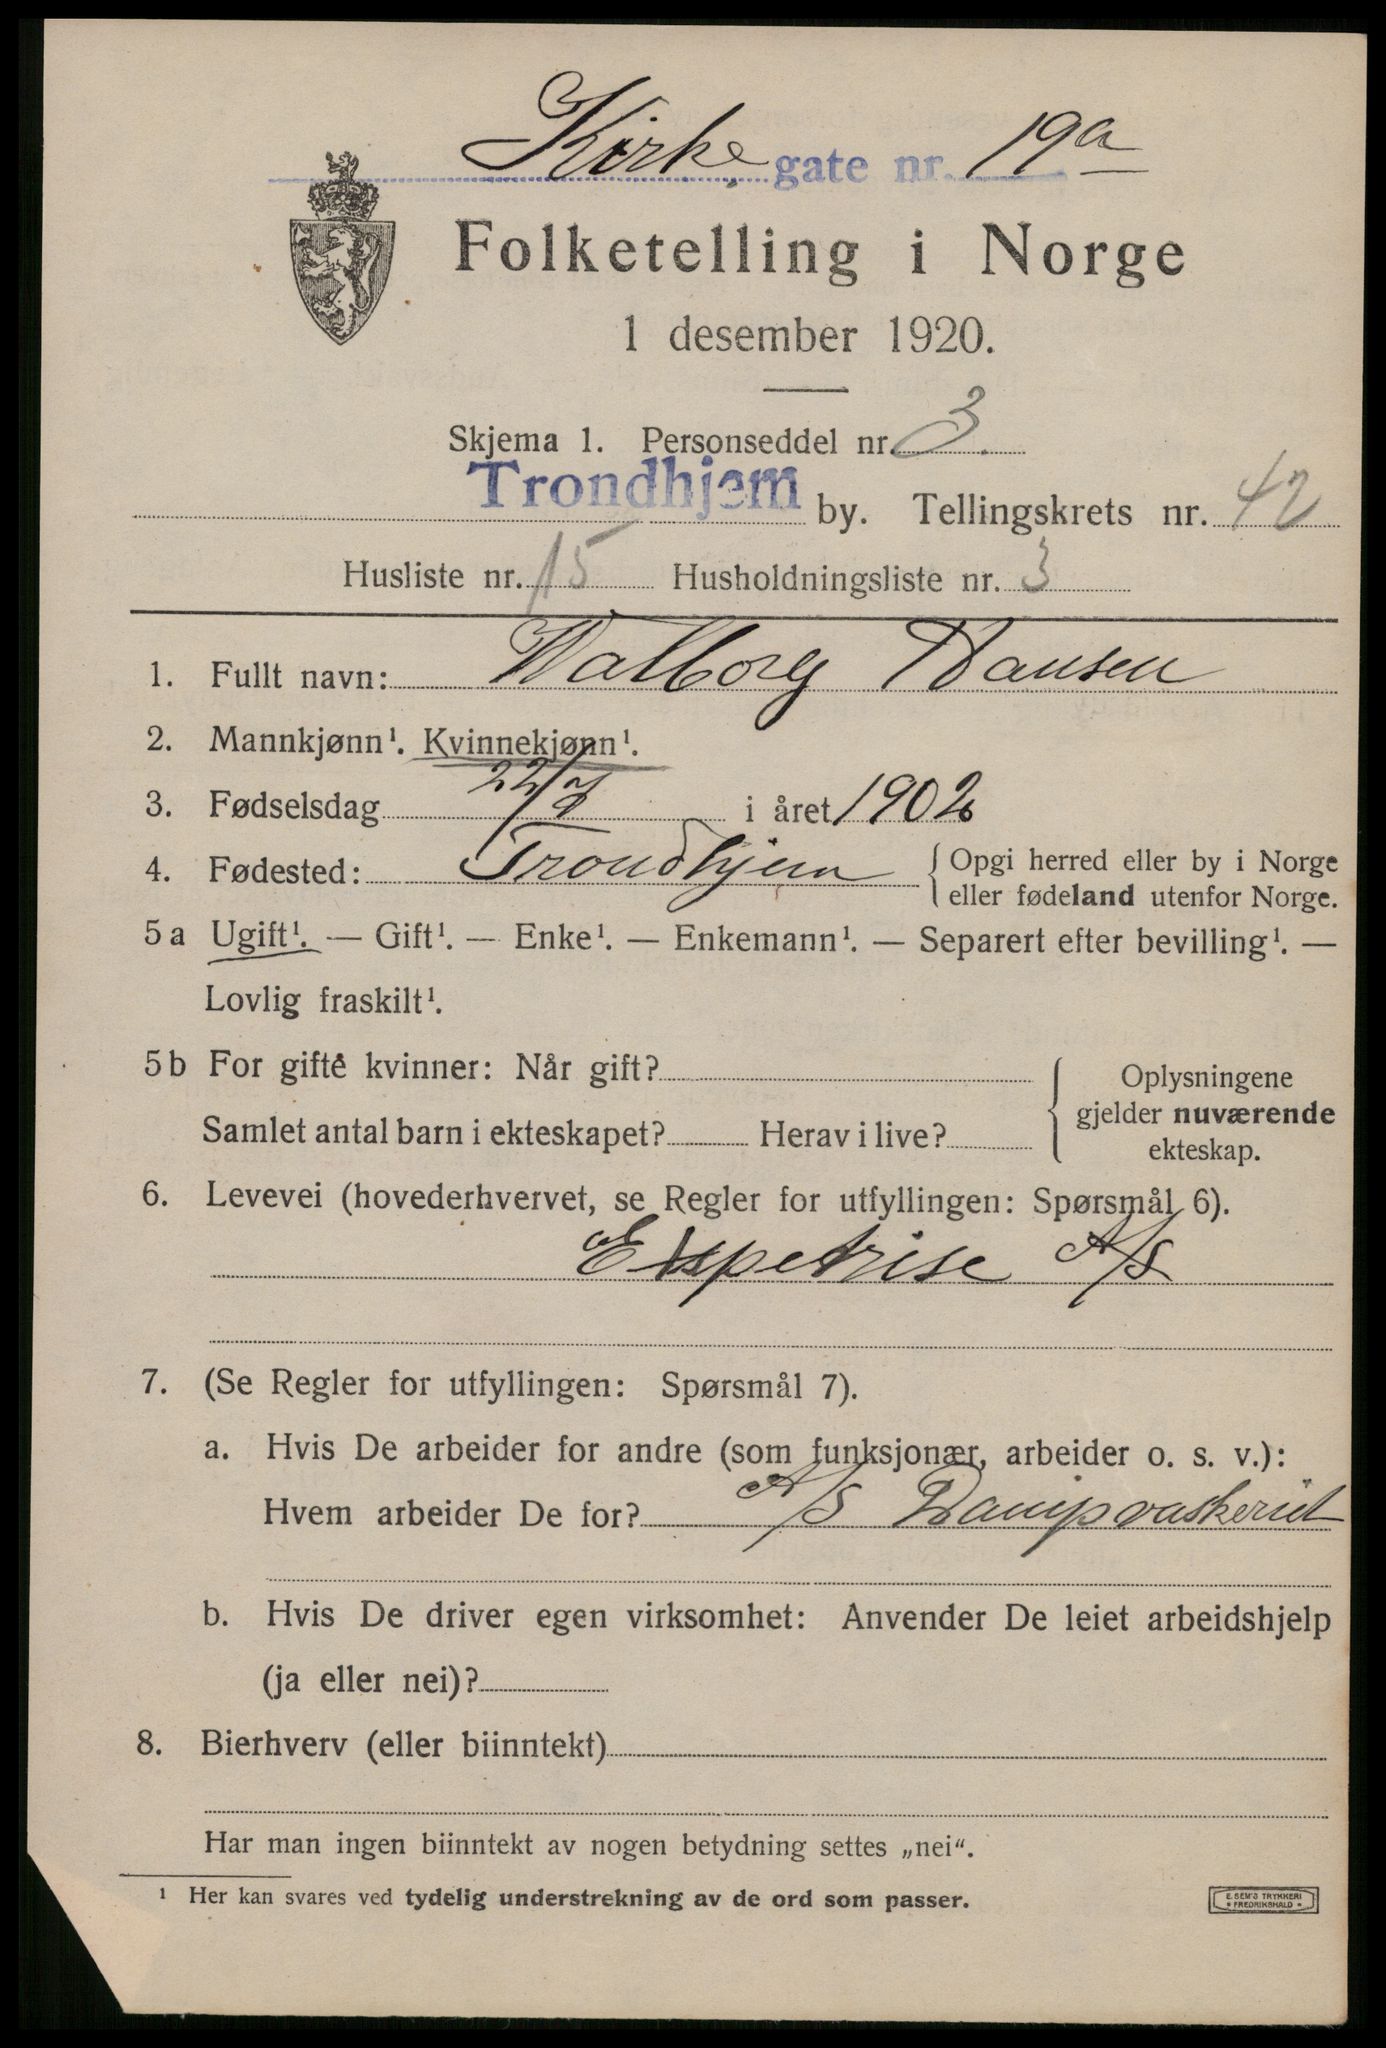 Kirke gate nr. 19a
Folketelling i Norge
1 desember 1920.
Skjema 1. Personseddel nr. 3.
Trondhjem by. Tellingskrets nr. 42
Husliste nr. 15 Husholdningsliste nr. 3
1. Fullt navn: Valborg Hansen
2. Mannkjønn¹. Kvinnekjønn¹.
3. Fødselsdag 22/7 i året 1902
4. Fødested: Trondhjem { Opgi herred eller by i Norge
eller fødeland utenfor Norge.
5a Ugift¹. — Gift¹. — Enke¹. — Enkemann¹. — Separert efter bevilling¹. —
Lovlig fraskilt¹.
5b For gifte kvinner: Når gift?
Samlet antal barn i ekteskapet? Herav i live?
Oplysningene
gjelder nuværende
ekteskap.
6. Levevei (hovederhvervet, se Regler for utfyllingen: Spørsmål 6).
Expetrise A/S
7. (Se Regler for utfyllingen: Spørsmål 7).
a. Hvis De arbeider for andre (som funksjonær, arbeider o. s. v.):
Hvem arbeider De for? A/S Dampvaskeriet
b. Hvis De driver egen virksomhet: Anvender De leiet arbeidshjelp
(ja eller nei)?
8. Bierhverv (eller biinntekt)
Har man ingen biinntekt av nogen betydning settes „nei“.
¹ Her kan svares ved tydelig understrekning av de ord som passer.
E. SEM'S TRYKKERI
* FREDRIKSHALD *